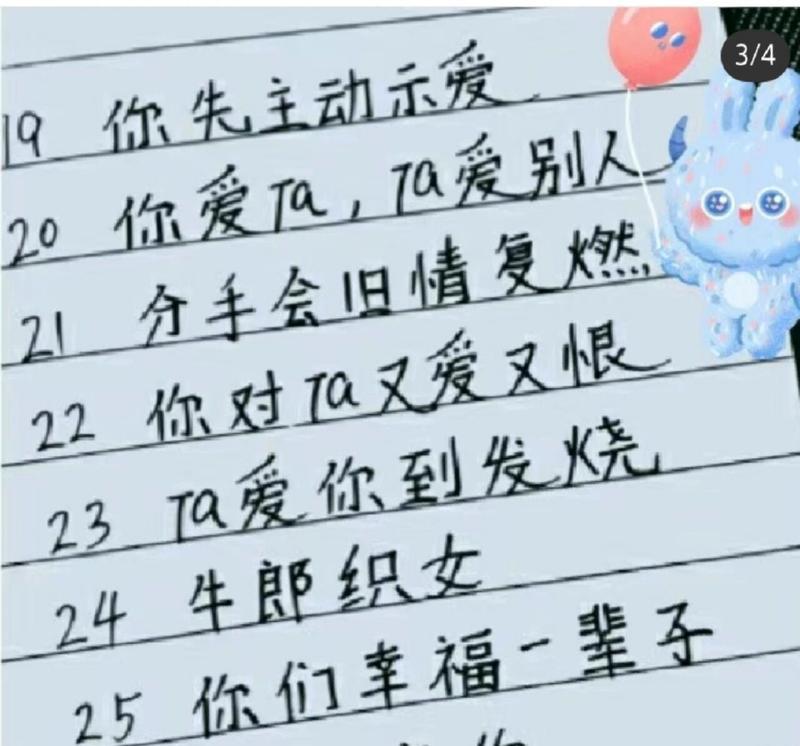 3/4
19 你先主动示爱
20 你爱Ta,Ta爱别人
21 分手会旧情复燃
22 你对Ta又爱又恨
23 Ta爱你到发烧
24 牛郎织女
25 你们幸福一辈子